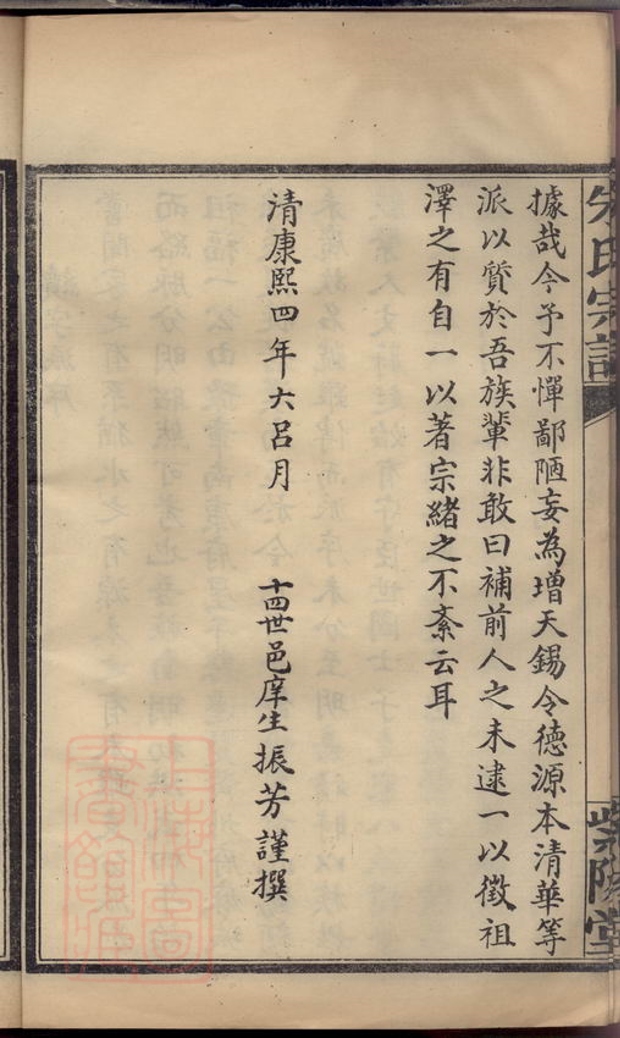 朱氏宗譜
紫陽堂
據哉今予不憚鄙陋妄為增天錫令德源本清華等
派以質於吾族輩非敢曰補前人之未逮一以徵祖
澤之有自一以著宗緒之不紊云耳
清康熙四年六呂月
十四世邑庠生振芳謹撰